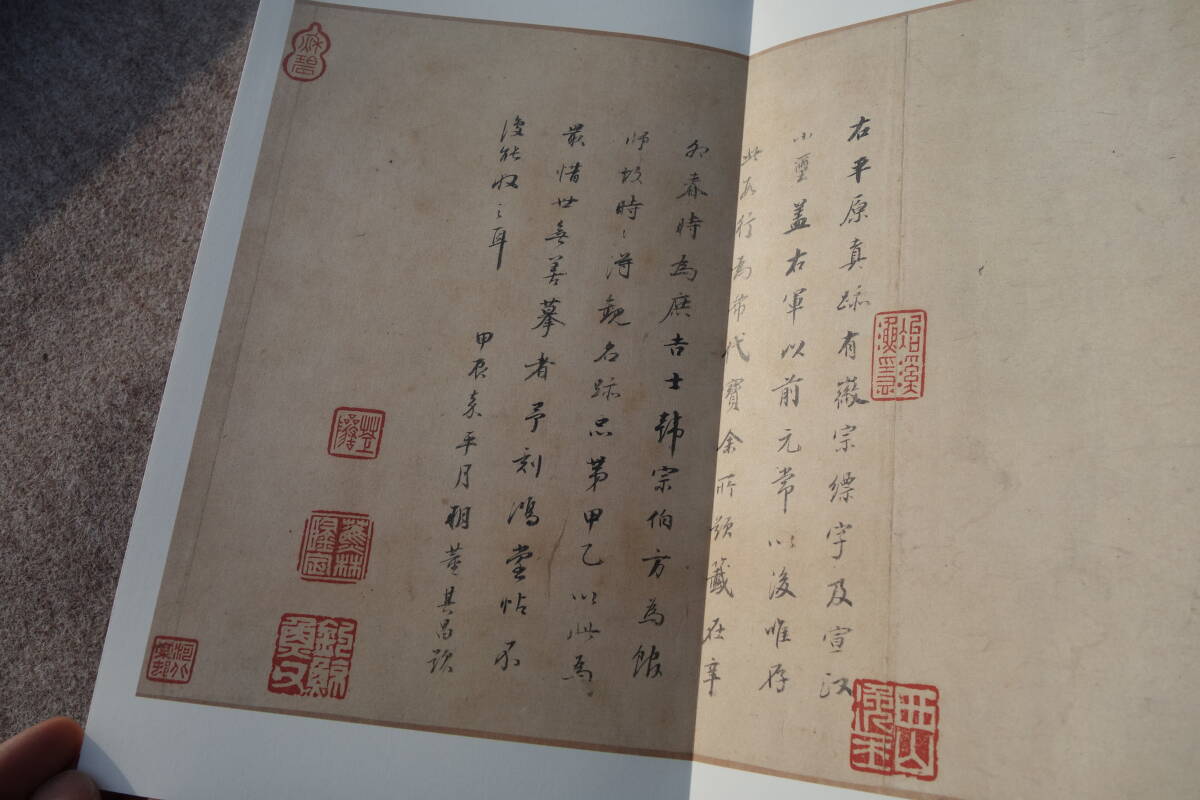 右平原真跡有徽宗縹字及宣政
小璽蓋右軍以前元常以後唯存
此數行為希代寶余所題籤在辛
卯春時為庶吉士韓宗伯方為館
師故時〻得觀名跡品第甲乙以此為
最惜世無善摹者予刻鴻堂帖不
復能收之耳
甲辰嘉平月朔董其昌題
冶溪漁隱
秋碧
蕉林